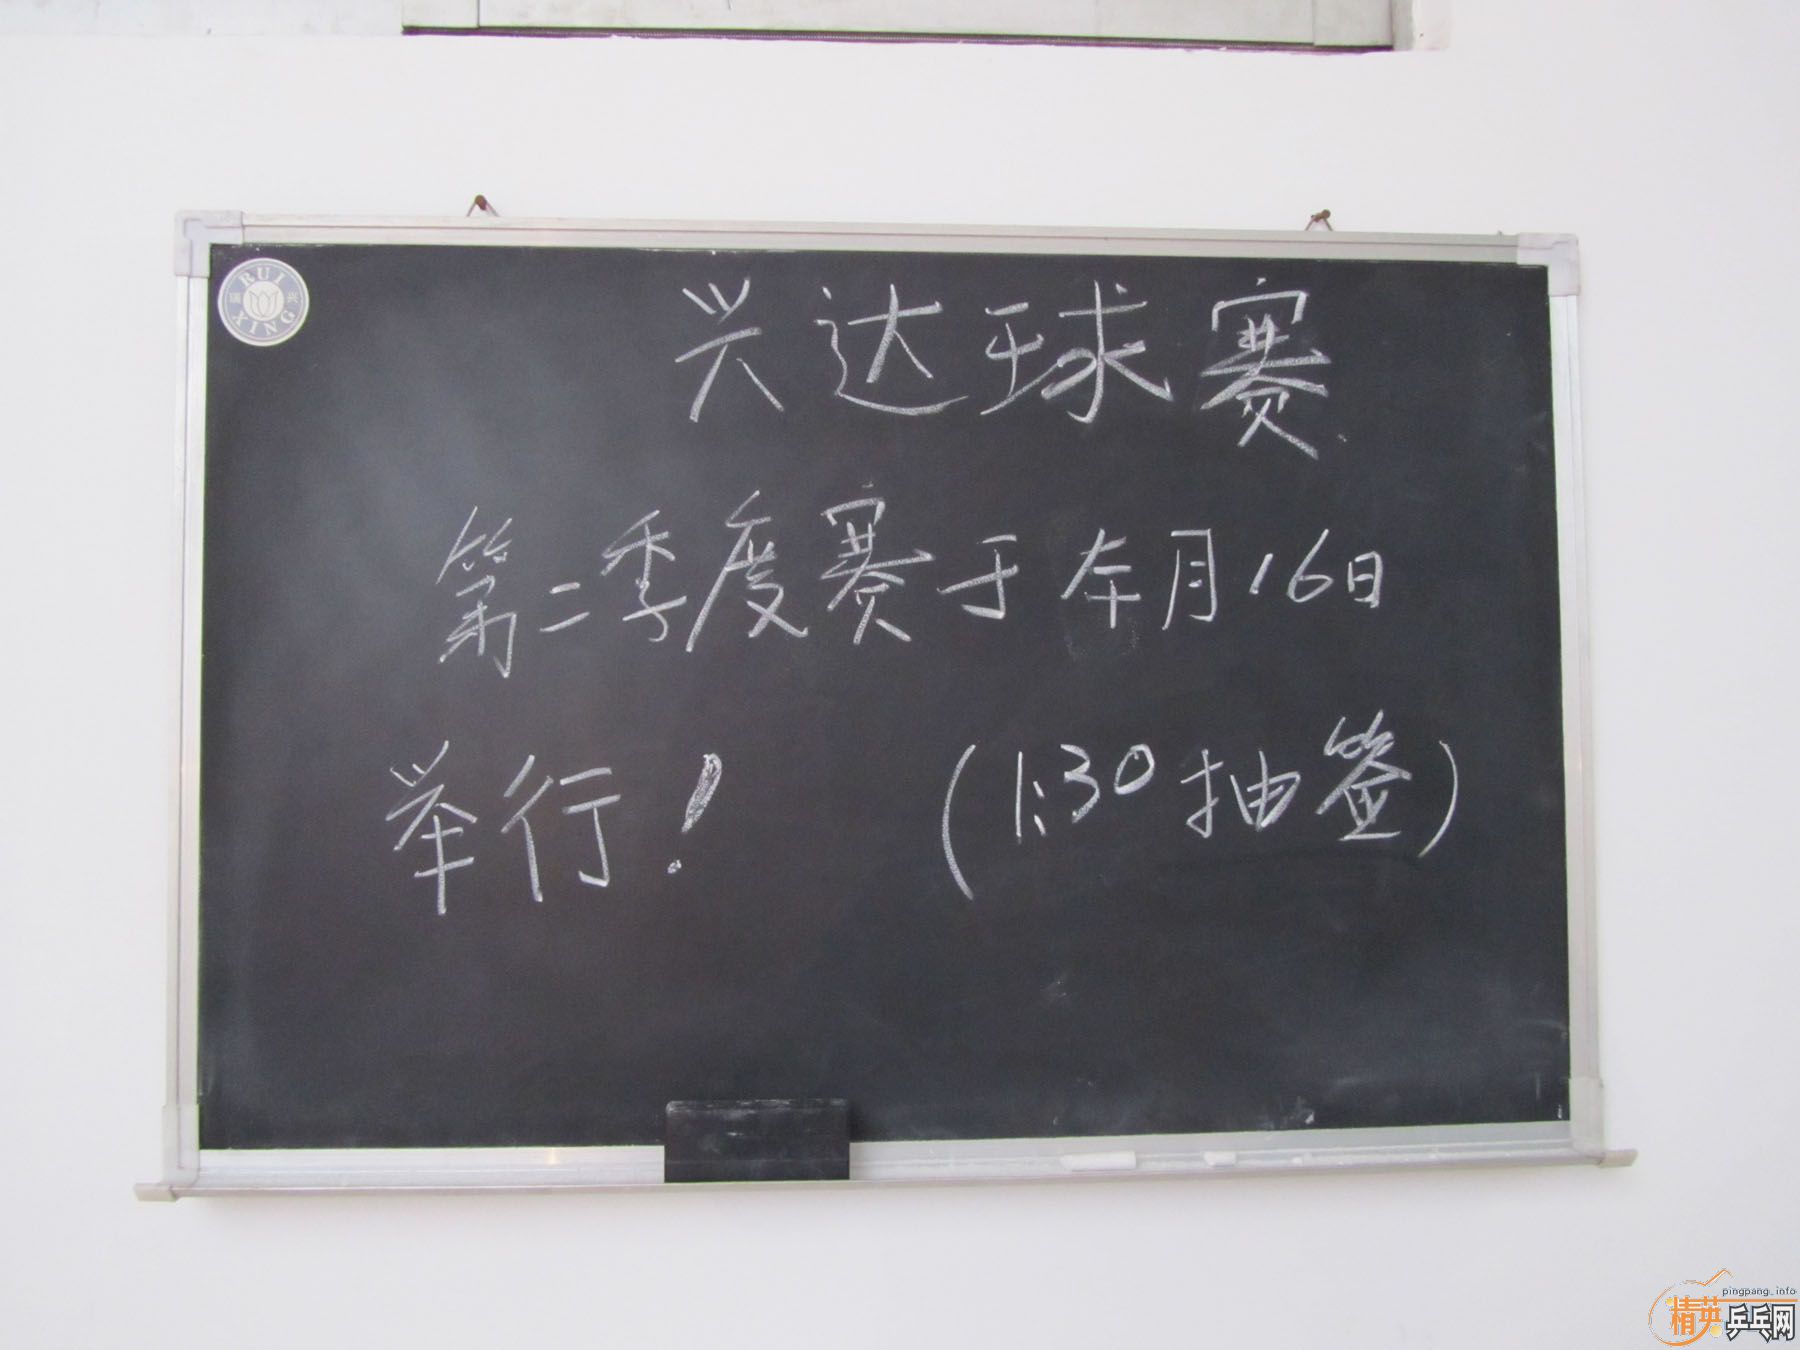 RUI
瑞 兴
XING
兴达球赛
第二季度赛于本月16日
举行！ (1:30抽签)
pingpang.info
精英乒乓网